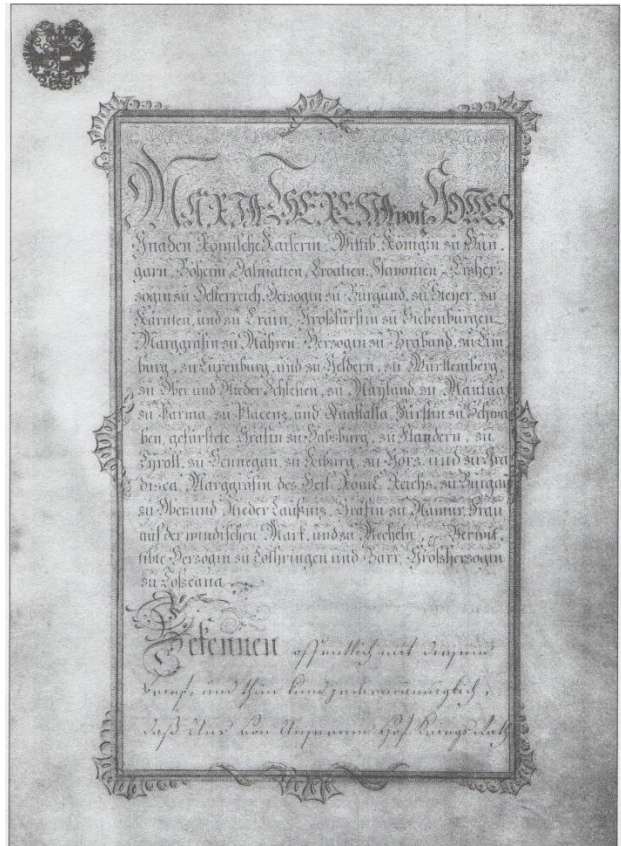 MARIA THERESIA von GOTTES
Gnaden Römische Kaiserin, Wittib, Königin zu Hun,
garn, Böheim, Dalmatien, Croatien, Slavonien, Erzher,
zogin zu Oesterreich, Herzogin zu Burgund, zu Steyer, zu
Kärnten, und zu Crain, Großfürstin zu Siebenbürgen
Marggräfin zu Mähren, Herzogin zu Braband, zu Lim
burg, zu Luxenburg, und zu Geldern, zu Württemberg,
zu Ober und Nieder Schlesien, zu Mayland, zu Mantua,
zu Parma, zu Placenz, und Quastalla, Fürstin zu Schwa
ben, gefürstete Gräfin zu Habsburg, zu Flandern, zu
Tyroll, zu Hennegau, zu Kiburg, zu Görz, und zu Gra
disca, Marggräfin des Heil. Röm. Reichs, zu Burgau
zu Ober und Nieder Laußniz, Gräfin zu Namur, Frau
auf der windischen Mark, und zu Mecheln, Verwit,
tibte Herzogin zu Lothringen und Barr, Großherzogin
zu Toscana
Bekennen öffentlich mit diesem
Briefe, und thun kund jedermänniglich,
daß Uns von Unserem Hof Kriegs Rath